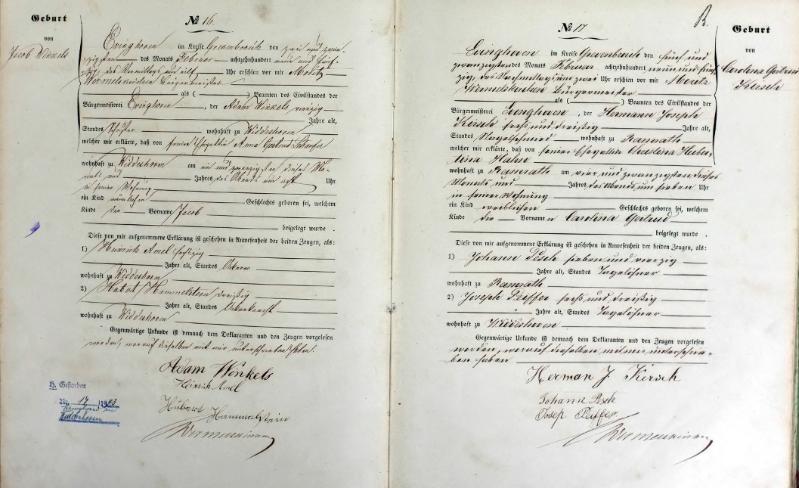 Geburt
von
Jacob Winkels
№ 16.
im Kreise Grevenbroich den zwei und zwan-
zigsten des Monats Februar achtzehnhundert neun und fünf-
zig, des Vormittags um elf Uhr erschien vor mir Moritz
Bürgermeister
als ( ) Beamten des Civilstandes der
Bürgermeisterei der Adam Winkels vierzig
Jahre alt,
Standes wohnhaft zu Widdeshoven
welcher mir erklärte, daß von seiner Ehegattin Anna Gertrud
wohnhaft zu Widdeshoven am ein und zwanzigsten dieses Mo-
nats und Jahres des Abends um acht Uhr
in seiner Wohnung
ein Kind männlichen Geschlechts geboren sei, welchem
Kinde der Vorname Jacob
beigelegt wurde.
Diese von mir aufgenommene Erklärung ist geschehen in Anwesenheit der beiden Zeugen, als:
1) Heinrich sechszig
Jahre alt, Standes Ackerer
wohnhaft zu Widdeshoven
2) Hubert Hammelstein dreißig
Jahre alt, Standes Ackerknecht
wohnhaft zu Widdeshoven
Gegenwärtige Urkunde ist demnach dem Deklaranten und den Zeugen vorgelesen
worden, worauf dieselben mit mir unterschrieben haben.
Adam Winkels
Heinrich
Hubert Hammelstein
H. Gestorben
№ 17 1923
№ 17
R.
Geburt
von
Carolina Gertrud
Kirsch
im Kreise Grevenbroich den fünf und
zwanzigsten des Monats Februar achtzehnhundert neun und fünf-
zig, des Vormittags um zwei Uhr erschien vor mir Moritz
Bürgermeister
als ( ) Beamten des Civilstandes der
Bürgermeisterei , der Hermann Joseph
Kirsch sechs und dreißig Jahre alt,
Standes Nagelschmied wohnhaft zu Ramrath
welcher mir erklärte, daß von seiner Ehegattin Catharina
Hahn
wohnhaft zu Ramrath am vier und zwanzigsten dieses
Monats und Jahres des Abends um sieben Uhr
in seiner Wohnung
ein Kind weiblichen Geschlechts geboren sei, welchem
Kinde die Vornamen Carolina Gertrud
beigelegt wurde.
Diese von mir aufgenommene Erklärung ist geschehen in Anwesenheit der beiden Zeugen, als:
1) Johann Pesch sieben und vierzig
Jahre alt, Standes Tagelöhner
wohnhaft zu Ramrath
2) Joseph Peiffer sechs und dreißig
Jahre alt, Standes Tagelöhner
wohnhaft zu
Gegenwärtige Urkunde ist demnach dem Deklaranten und den Zeugen vorgelesen
worden, worauf dieselben mit mir unterschrie-
ben haben
Herman J Kirsch
Johann Pesch
Josep Peiffer